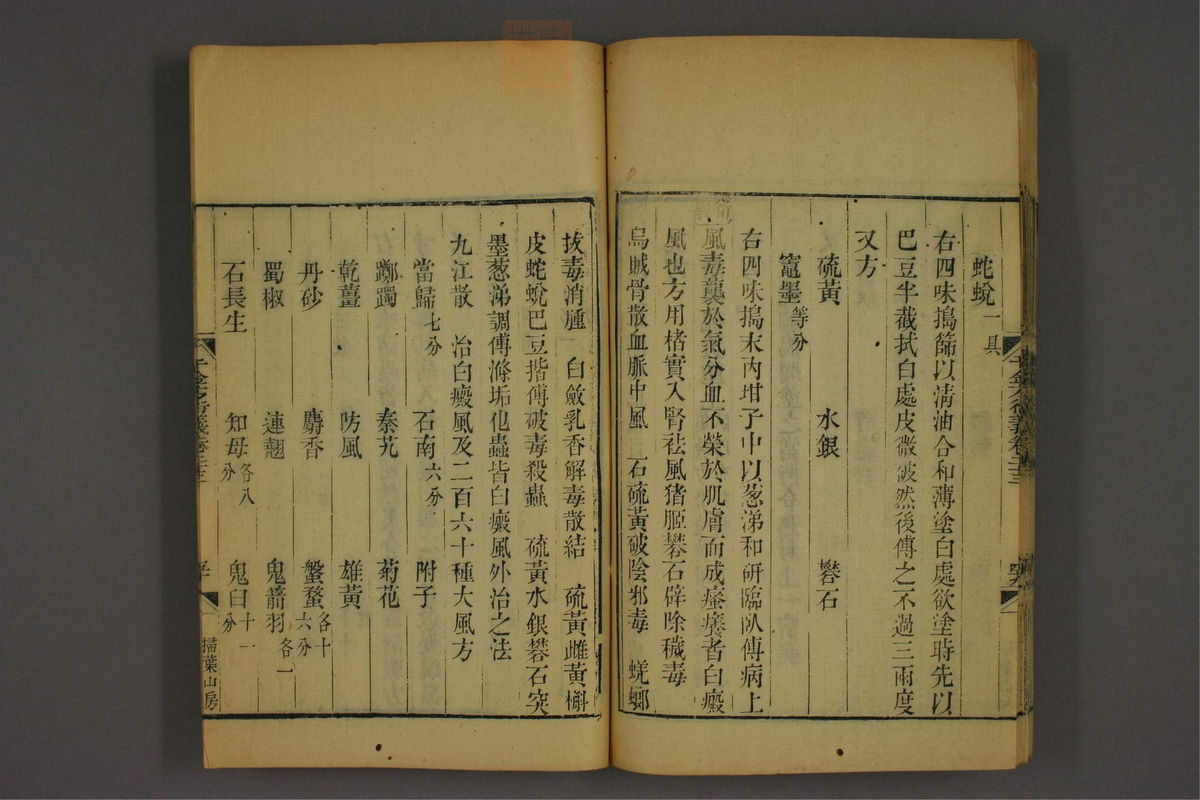 蛇蛻一具
右四味搗篩以淸油合和薄塗白處欲塗時先以
巴豆半截拭白處皮微破然後傅之不過三兩度
又方
硫黃 水銀 礬石
竈墨等分
右四味搗末內坩子中以葱涕和硏臨臥傅病上
風毒襲於氣分血不榮於肌膚而成瘙癢者白癜
風也方用楮實入腎祛風猪胵礬石辟除穢毒
烏賊骨散血脈中風 石硫黃破陰邪毒 蜣螂
拔毒消腫 白斂乳香解毒散結 硫黃雌黃槲
皮蛇蛻巴豆揩傅破毒殺蟲 硫黃水銀礬石突
墨葱涕調傅滌垢化蟲皆白癜風外治之法
九江散 治白癜風及二百六十種大風方
當歸七分 石南六分 附子
躑躅 秦艽 菊花
乾薑 防風 雄黃
丹砂 麝香 蟞蝥各十六分
蜀椒 連翹 鬼箭羽各一
石長生 知母各八分 鬼臼十一分
千金方衍義卷二十三
掃葉山房